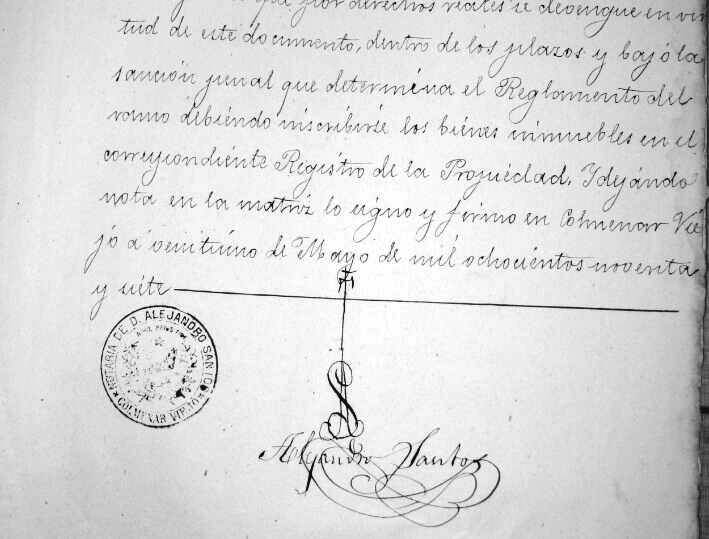 que por derechos reales se devengue en vir
tud de este documento, dentro de los plazos y bajó la
sanción penal que determina el Reglamento del
ramo debiendo inscribirse los biénes inmuebles en el
correspondiente Registro de la Propiedad. Y dejándo
nota en la matriz lo signo y firmo en Colmenar Vie
jo á veintiuno de Mayo de mil ochocientos noventa
y siete
NOTARIA DE D. ALEJANDRO SANTOS
COLMENAR VIEJO
Alejandro Santos